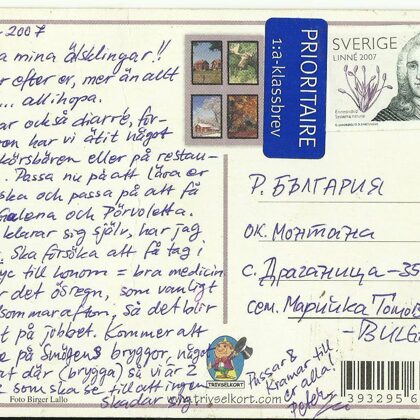 -2007
a mina älsklingar!!
er efter er, mer än allt
... allihopa.
ar också diarré, för-
on har vi ätit något
körsbären eller på restau-
. Passa nu på att lära er
ska och passa på att få
alena och Pörvoletta.
klarar sig själv, har jag
. Ska försöka att få tag i
till honom = bra medicin
r det ösregn, som vanligt
sommarafton, så det blir
t på jobbet. Kommer att
på Smögens bryggor, något
at där (brygga) så vi är 2
som ska se till att ingen
skadar sig
Passar 8
Kramar till
er alla!
Peter
PRIORITAIRE
1:a-klassbrev
SVERIGE
LINNÉ 2007
Р. БЪЛГАРИЯ
ОК. МОНТАНА
С. ДРАГАНИЦА-35
СЕМ. МАРИЙКА ТОТО
-BULG
Foto Birger Lallo
TRIVSELKORT
www.trivselkort.com
393295